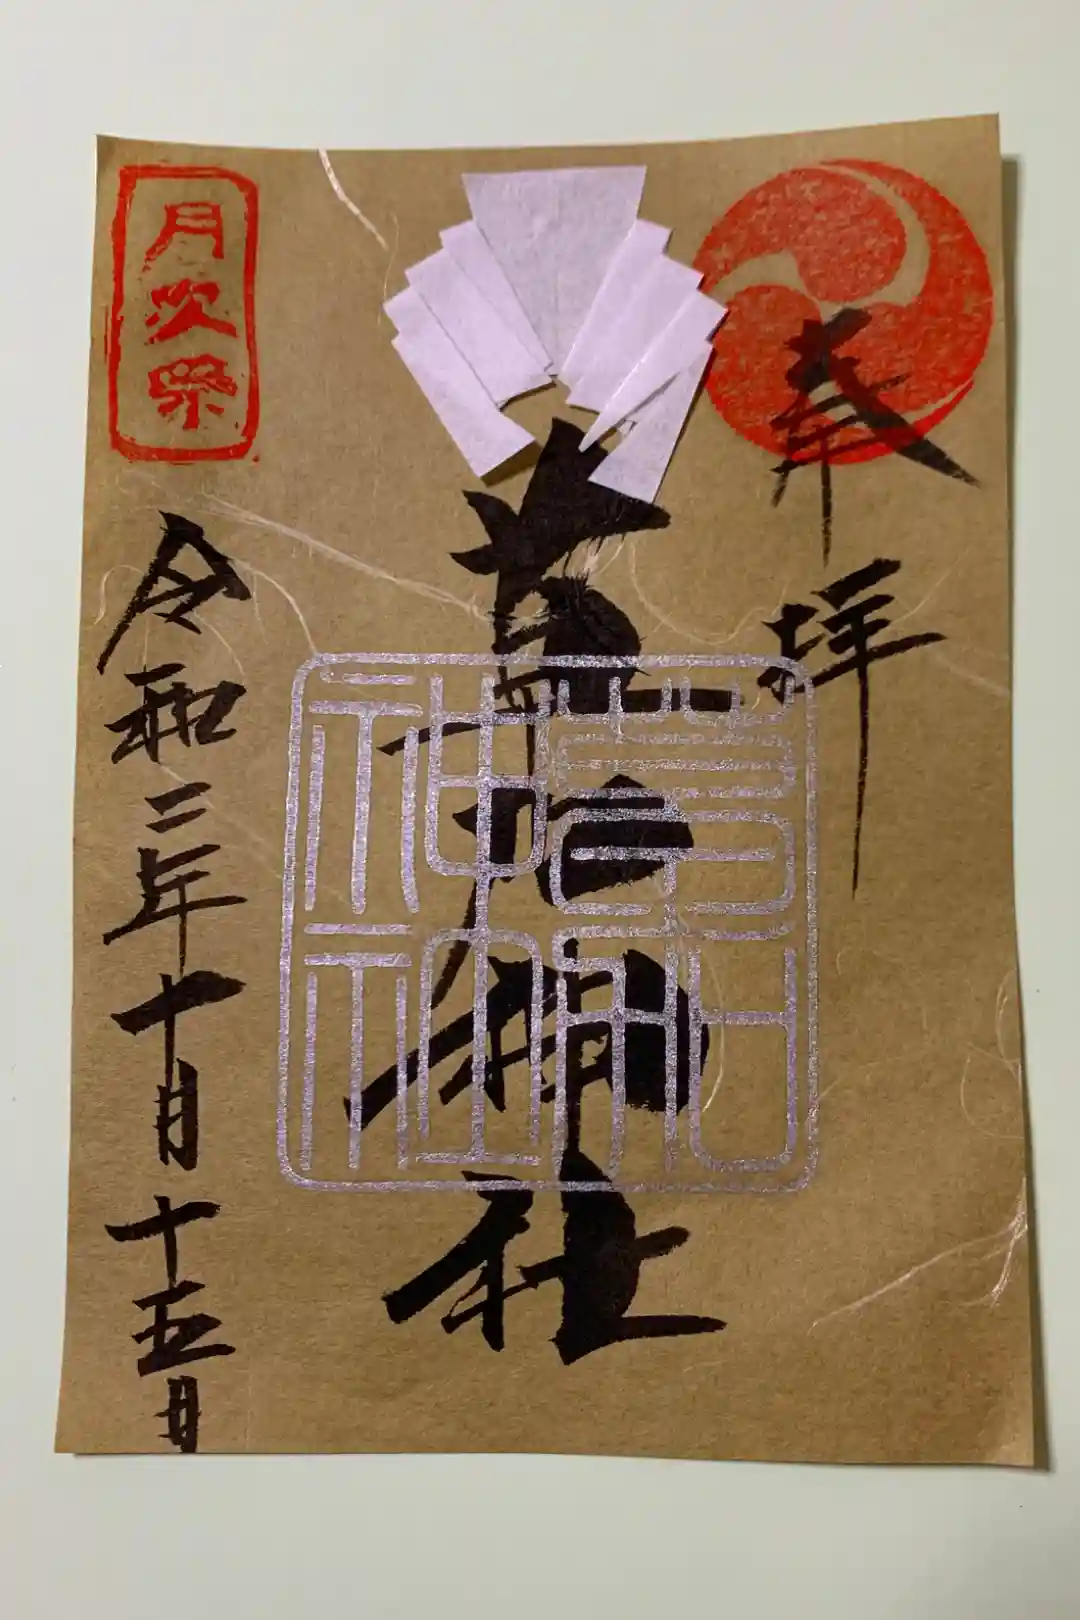 奉拝
神社
神社
月次祭
令和三年十月十五日